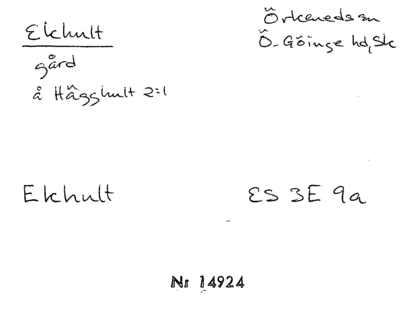 Ekhult
Örkeneds sn
Ö. Göinge hd, Sk
gård
å Hägghult 2:1
Ekhult
ES 3E 9a
Nr 14924